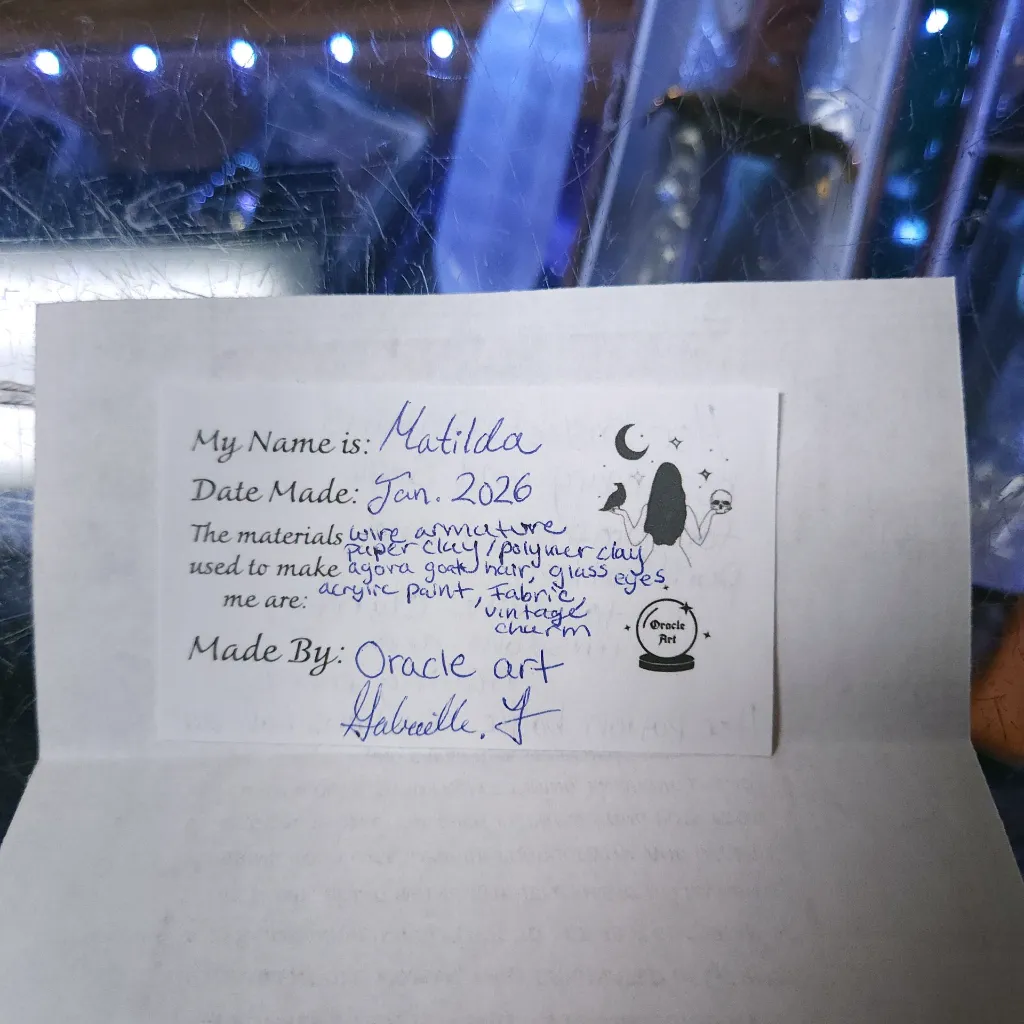 My Name is: Matilda
Date Made: Jan. 2026
The materials wire armature
paper clay/polymer clay
used to make agora goat hair, glass eyes,
me are: acrylic paint, Fabric,
vintage
charm
Made By: Oracle art
Gabrielle. F
Oracle
Art